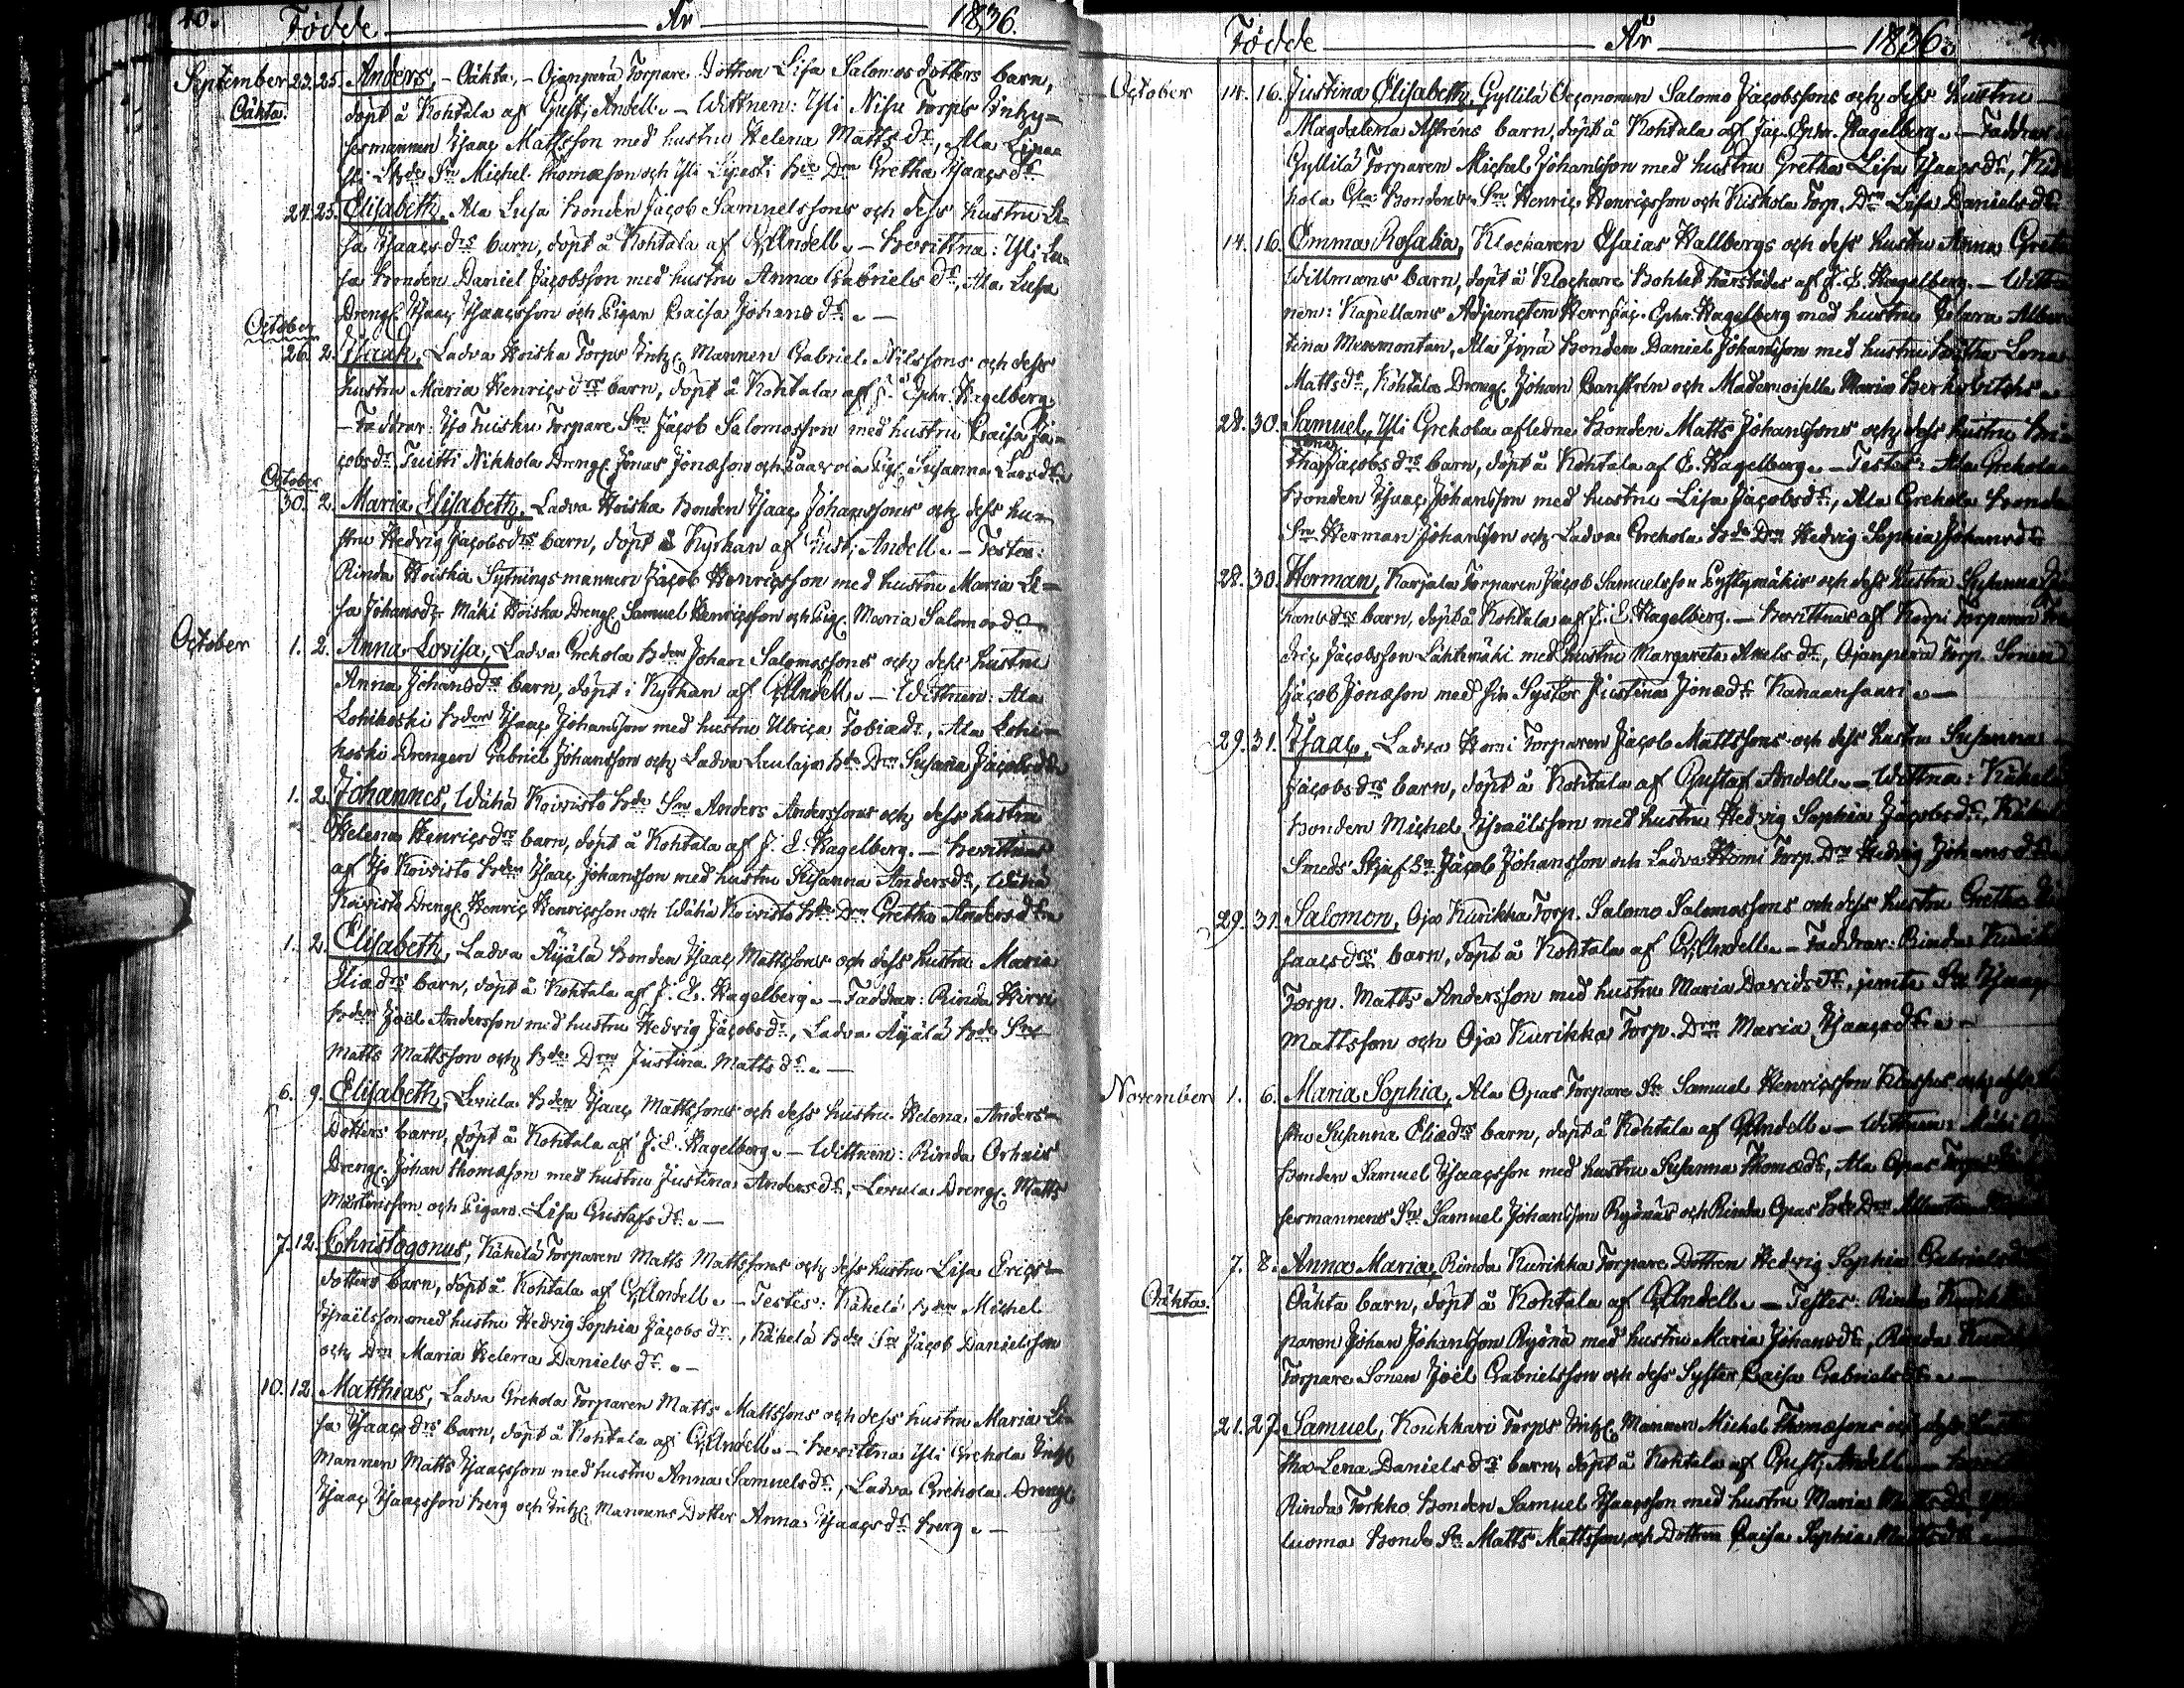 40. Födde År 1836.
September 23. 25. Anders, – Oäkta, – Ojanperä Torpare Dottren Lisa Salomos dotters barn,
Oäkta. döpt å Kohtala af Gust: Andell. – Wittnen: Yli Nisu Torps Inhy=
sesmannen Isaac Mattsson med hustru Helena Matts dr, Ala
Bde Sn Michel Thomæson och Yli Lipasti Bde Drn Gretha Isaacs dr
24. 25. Elisabeth, Ala Lusa Bonden Jacob Samuelssons och dess hustru Li=
sa Isaacs drs barn, döpt å Kohtala af G Andell. – Bevittna: Yli Lu=
sa Bonden Daniel Jacobsson med hustru Anna Gabriels dr, Ala Lusa
Dreng. Isaac Isaacsson och Pigan Caisa Johans dr. –
October
26. 2. Isaak, Ladva Hoiska Torps Inhys. Mannen Gabriel Nilssons och dess
hustru Maria Henrics drs barn, döpt å Kohtala af J. Ephr. Hagelberg.
– Faddrar: Iso Torpare Sn Jacob Salomosson med hustru Caisa Ja=
cobs dr Tuitti Nikkola Dreng. Jonas Jonæson och Pig. Susanna Lars dr
October
30. 2. Maria Elisabeth, Ladva Hoiska Bonden Isaac Johanssons och dess hu=
stru Hedvig Jacobs drs barn, döpt å Kyrkan af Gust: Andell. – Testes:
Rinda Hoiska Sytningsmannen Jacob Henricsson med hustru Maria Li=
sa Johans dr Mäki Hoiska Dreng. Samuel Henricsson och Pig. Maria Salomos dr
October 1. 2. Anna Lovisa, Ladva Grekola Bden Johan Salomossons och dess hustru
Anna Johans drs barn, döpt i Kyrkan af G Andell. – Wittnen: Ala
Lohikoski Bden Isaac Johansson med hustru Ulrica Tobiæ dr, Ala Lohi=
koski Drengen Gabriel Johansson och Ladva Laulaja Bde Drn Susanna Jacobs dr
1. 2. Johannes, Wähä Koivisto Bde Sn Anders Anderssons och dess hustru
Helena Henrics drs barn, döpt å Kohtala af J. E. Hagelberg. – Bevittnas
af Iso Koivisto Bden Isaac Johansson med hustru Susanna Anders dr, Wähä
Koivisto Dreng. Henric Henricsson och Wähä Koivisto Bde Drn Gretha Anders dr
1. 2. Elisabeth, Ladva Äyälä Bonden Isaac Mattssons och dess hustru Maria
Eliæ drs barn, döpt å Kohtala af J. E. Hagelberg. – Faddrar: Rinda Hirvi
Bden Joël Andersson med hustru Hedvig Jacobs dr, Ladva Äyälä Bde Sn
Matts Mattsson och Bde Drn Justina Matts dr. –
6. 9. Elisabeth, Levula Bden Isaac Mattssons och dess hustru Helena Anders=
dotters barn, döpt å Kohtala af J. E. Hagelberg. – Wittnen: Rinda Orhais
Dreng. Johan Thomæson med hustru Justina Anders dr, Levula Dreng. Matts
Mårtensson och Pigan Lisa Gustafs dr. –
7. 12. Christogonus, Käkelä Torparen Matts Mattssons och dess hustru Lisa Erics=
dotters barn, döpt å Kohtala af G Andell. – Testes: Käkelä Bden Michel
Israëlsson med hustru Hedvig Sophia Jacobs dr, Käkelä Bde Sn Jacob Danielsson
och Drn Maria Helena Daniels dr. –
10. 12. Matthias, Ladva Grekola Torparen Matts Mattssons och dess hustru Maria Li=
sa Isaacs drs barn, döpt å Kohtala af G Andell. – Bevittna Yli Grekola Inhys
Mannen Matts Isaacsson med hustru Anna Samuels dr, Ladva Grekola Dreng.
Isaac Isaacsson Berg och Inhys. Mannens Dotter Anna Isaacs dr Berg. –
Födde År 1836.
October 14. 16. Justina Elisabeth, Gyllilä Oeconomen Salomo Jacobssons och dess hustru
Magdalena Astréns barn, döpt å Kohtala af Jac. Ephr. Hagelberg. – Faddrar
Gyllilä Torparen Michel Johansson med hustru Gretha Lisa Isaacs dr,
kola Ala Bonde Sn Henric Henricsson och Kiskola Torp. Drn Lisa Daniels dr
14. 16. Emma Rosalia, Klockaren Esaias Wallbergs och dess hustru Anna Greta
Willmans barn, döpt å Klockare Bohlet härstädes af J. E. Hagelberg. – Witt
nen: Kapellans Adjuncten Herr Jac. Ephr. Hagelberg med hustru Clara Alber
tina Monmontan, Ala Jyrä Bonden Daniel Johansson med hustru Lena
Matts dr, Kohtala Dreng. Johan och Mademoiselle Maria
28. 30. Samuel, Yli Grekola afledne Bonden Matts Johanssons och dess hustru
Jacobs drs barn, döpt å Kohtala af E. Hagelberg. – Testes: Ala Grekola
Bonden Isaac Johansson med hustru Lisa Jacobs dr, Ala Grekola Bonde
Sn Herman Johansson och Ladva Grekola Bde Drn Hedvig Sophia Johans dr
28. 30. Herman, Karjala Torparen Jacob Samuelsson Pystymäkis och dess hustru Susanna Jo
hans drs barn, döpt å Kohtala af J. E. Hagelberg. – Bevittnas af Korpi Torparen Hen
dric Jacobsson Lähtemäki med hustru Margareta Axels dr, Ojanperä Torp. Sonen
Jacob Jonæson med sin Syster Justina Jonæ dr Kanaansaari. –
29. 31. Isaac, Ladva Homi Torparen Jacob Mattssons och dess hustru Susanna
Jacobs drs barn, döpt å Kohtala af Gustaf Andell. – Wittna: Käkelä
Bonden Michel Israëlsson med hustru Hedvig Sophia Jacobs dr,
Smeds Sn Jacob Johansson och Ladva Homi Torp. Drn Hedvig Johans dr
29. 31. Salomon, Oja Kurikka Torp. Salomo Salomossons och dess hustru Gretha
saacs drs barn, döpt å Kohtala af G Andell. – Faddrar: Rinda
Torp. Matts Andersson med hustru Maria Davids dr, jemte Sn Isaac
Mattsson och Oja Kurikka Torp. Drn Maria Isaacs dr. –
November 1. 6. Maria Sophia, Ala Opas Torpare Sn Samuel Henricsson och dess
stru Susanna Eliæ drs barn, döpt å Kohtala af G Andell. – Wittnen: Mäki
Bonden Samuel Isaacsson med hustru Susanna Thomæ dr, Ala Opas
sesmannens Sn Samuel Johansson Ryönäs och Rinda Opas Bde Drn Albertina
7. 8. Anna Maria, Rinda Kurikka Torpare Dottren Hedvig Sophia Gabriels
Oäkta. Oäkta barn, döpt å Kohtala af G Andell. – Testes: Rinda
paren Johan Johansson Ryönä med hustru Maria Johans dr, Rinda
Torpare Sonen Joël Gabrielsson och dess Syster Caisa Gabriels dr. –
21. 27. Samuel, Koukkari Torps Inhys. Mannen Michel Thomæsons och dess
tha Lena Daniels drs barn, döpt å Kohtala af Gust: Andell –
Rinda Torkko Bonden Samuel Isaacsson med hustru Maria
luoma Bonde Sn Matts Mattsson och Dottren Caisa Sophia